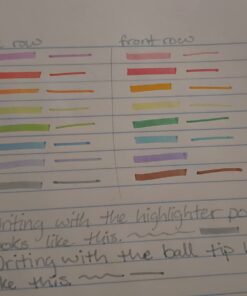 row front row
riting with the highlighter po
ooks like this.
Writing with the ball tip l
ke this